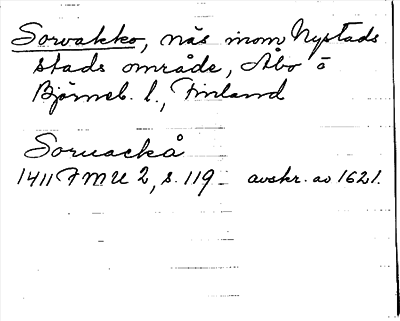 Sorvakko, näs inom Nystads
stads område, Åbo o
Björneb. l., Finland
Soruackå
1411 FMU 2, s. 119 avskr. av 1621.